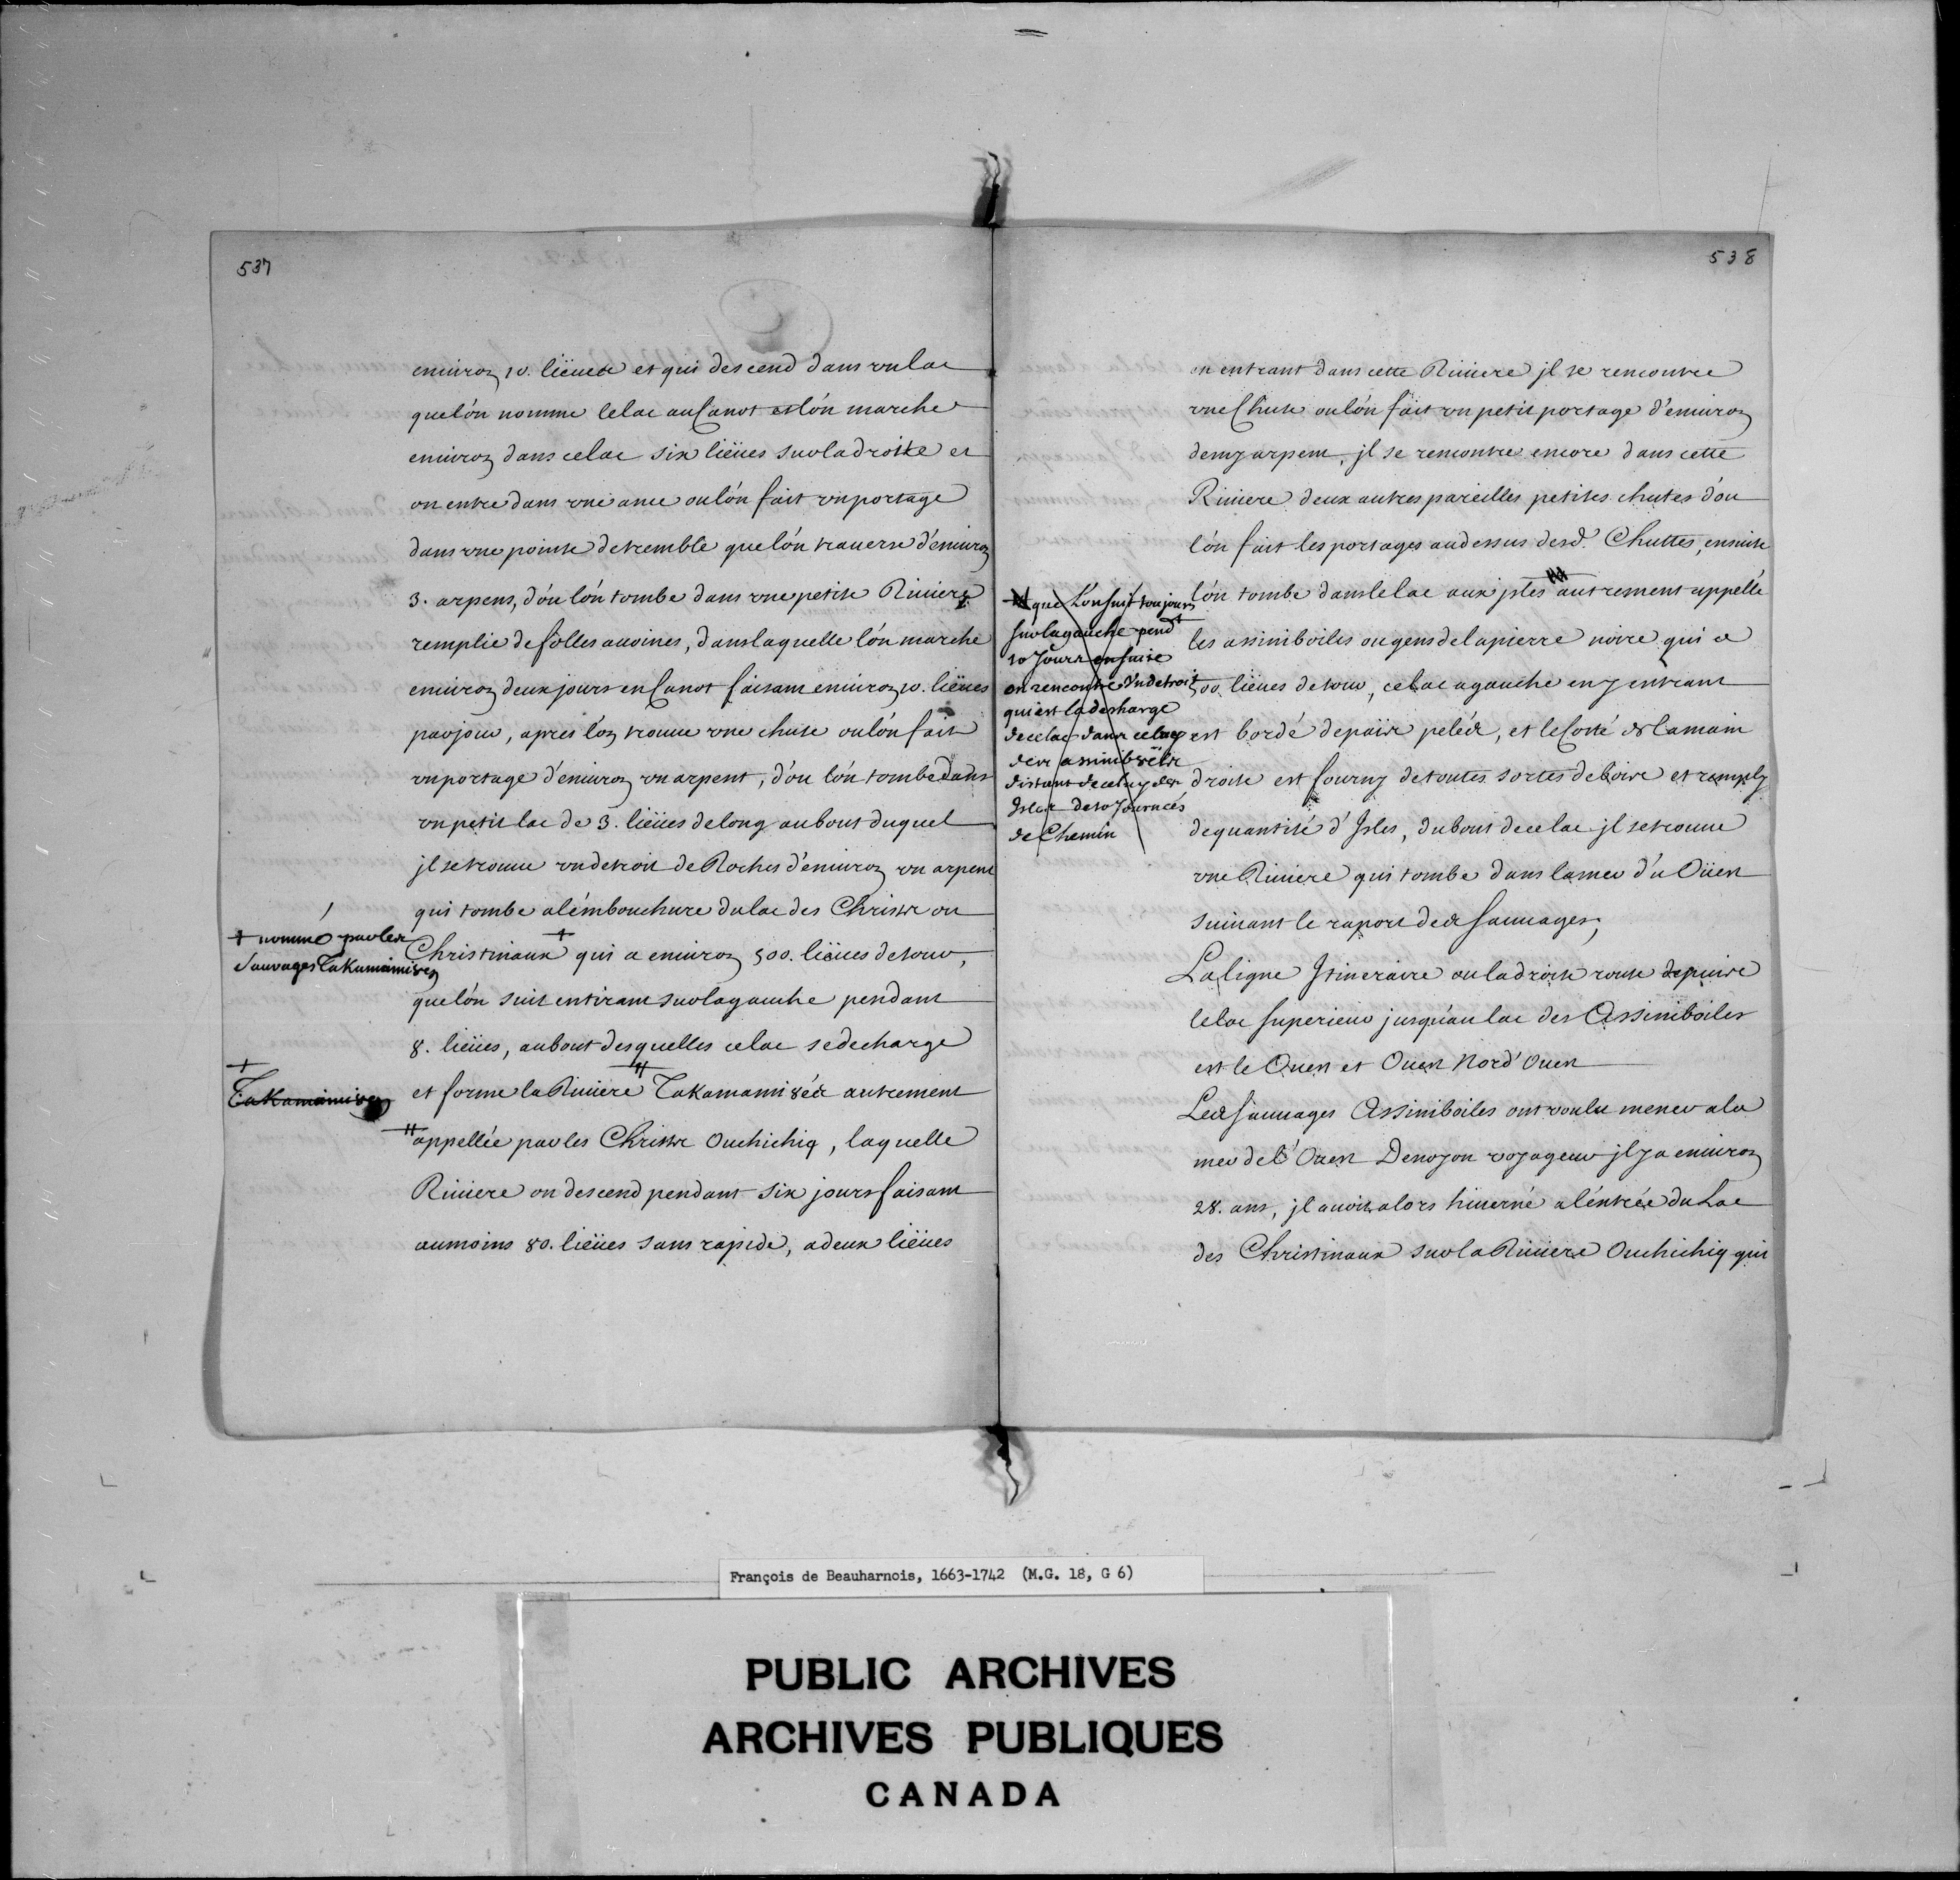 537
enuiron 10. liëues et qui descend dans vn lac
que lón nomme le lac au Canot et lón marche
enuiron dans ce lac six liëues sur la droitte et
on entre dans vne ance ou lón fait vn portage
dans vne pointe de tremble que lón trauerse d'enuiron
3. arpens, d'óu lón tombe dans vne petite Riuiere
remplie de folles auoines, dans laquelle lón marche
enuiron deux jours en Canot faisant enuiron 10. liëues
par jour, apres l'on trouue vne chute ou lón fait
vn portage d'enuiron vn arpent, d'ou lón tombe dans
vn petit lac de 3. liëues de long au bout duquel
jl se trouue vn detroit de Roches d'enuiron vn arpent
qui tombe a lémbouchure du lac des Christs ou
+ nommé par les
Sauvages Takamamis8en
Christinaux + qui a enuiron 500. liëues de tour,
que lón suit en tirant sur la gauche pendant
8. liëues, au bout desquelles ce lac se decharge
+
Takamamis8en
et forme la Riuiere Takamamis8és autrement
appellée par les Christs Ouchichiq, laquelle
Riuiere on descend pendant six jours faisant
au moins 80. liëues sans rapide, a deux liëues
538
en entrant dans cette Riuiere jl se rencontre
vne Chute ou lón fait vn petit portage d'enuiron
demy arpent, jl se rencontre encore dans cette
Riuiere deux autres pareilles petites chutes d'ou
lón fait les portages au dessus desd. Chuttes, ensuite
lón tombe dans le lac aux jsles autrement appellé
les assiniboiles ou gens de la pierre noire qui a
500. liëues de tour, ce lac a gauche en y entrant
est bordé de païs pelés, et le Costé de la main
droite est fourny de toutes sortes de bois et remply
de quantité d'Jsles, du bout de ce lac jl se trouue
vne Riuiere qui tombe dans la mer d'u Oüest
suiuant le raport des Sauuages;
que Lon suit toujours
sur la gauche pend.t
10 Jours ensuite
on rencontre Un detroit
qui est la descharge
de ce lac dans celuy
des assinib8els
distant de celuy des
Isles de 10 Journees
de Chemin
La ligne Jtineraire ou la droite route depuis
le lac Superieur jusqu'au lac des Assiniboiles
est le Ouest et Ouest Nord'Ouest
Les Sauuages Assiniboiles ont voulu mener a la
mer de l'Ouest Denoyon voyageur jl y a enuiron
28. ans, jl auoit alors hiuerné a léntrée du Lac
des Christinaux sur la Riuiere Ouchichiq qui
François de Beauharnois, 1663-1742 (M.G. 18, G 6)
PUBLIC ARCHIVES
ARCHIVES PUBLIQUES
CANADA